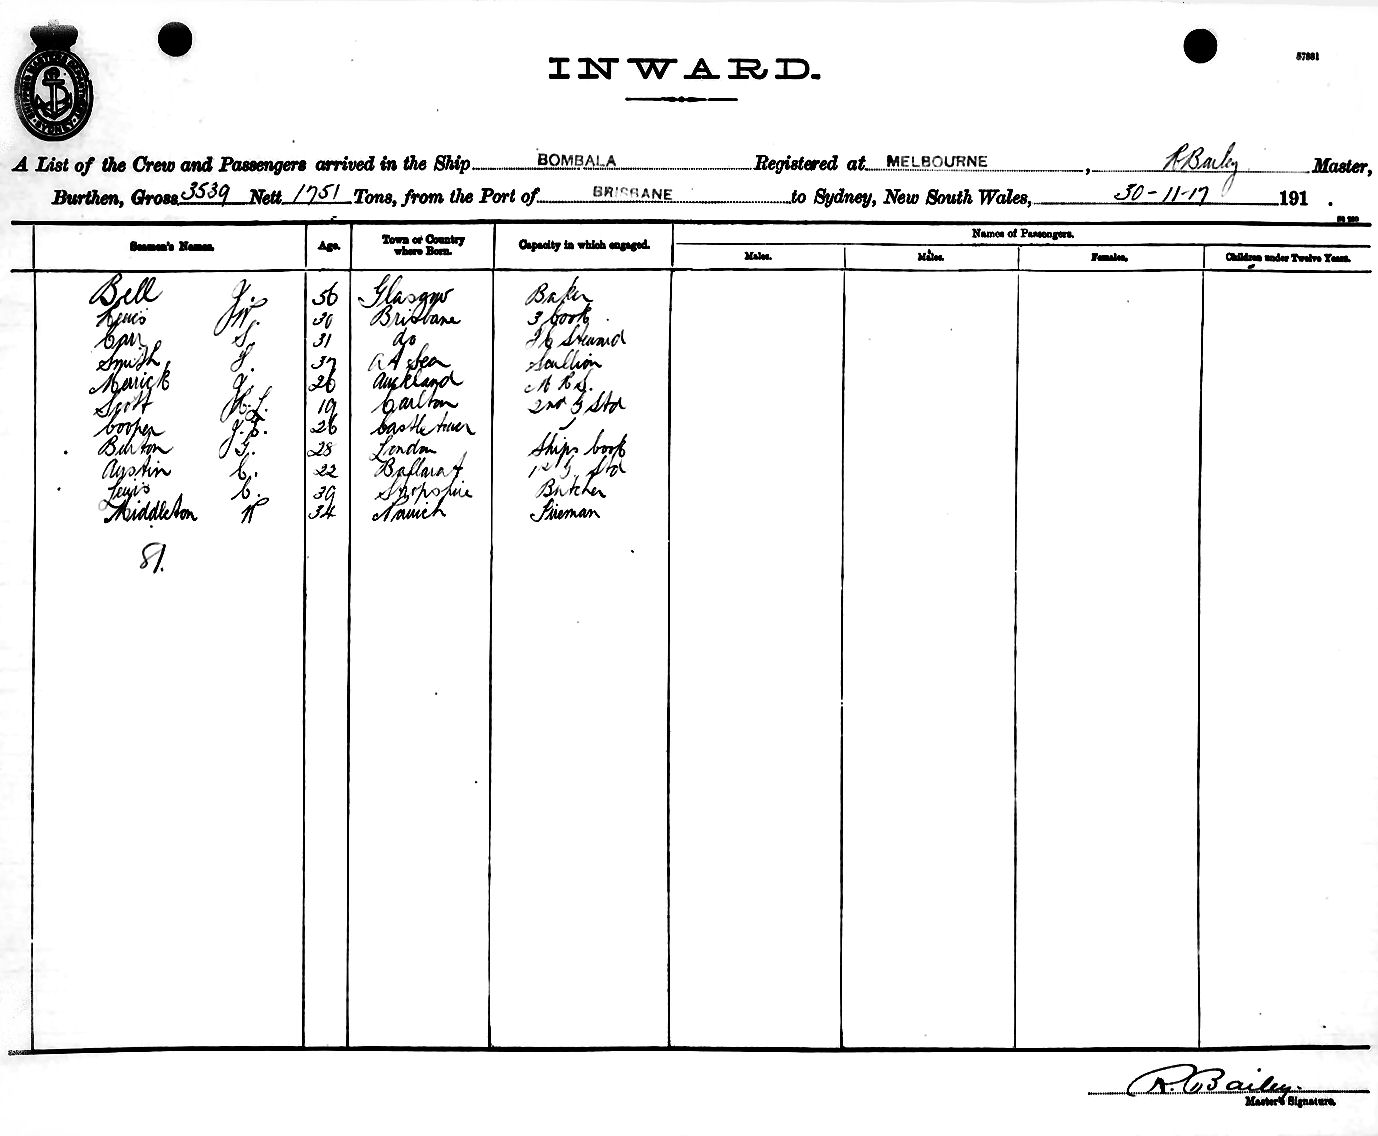 INWARD.
57981
SYDNEY
A List of the Crew and Passengers arrived in the Ship BOMBALA Registered at MELBOURNE, R Bailey Master,
Burthen, Gross 3539 Nett 1751 Tons, from the Port of BRISBANE to Sydney, New South Wales, 30-11-17 191 .
Seamen's Names. Age. Town or Country where Born. Capacity in which engaged. Names of Passengers.
Males. Males. Females. Children under Twelve Years.
Bell J. 56 Glasgow Baker
Lewis J W. 30 Brisbane 3 Cook
Carr S. 31 do Steward
Smith 37 At Sea Scullion
Merrick J. 26 Auckland
Scott H. L. 19 Carlton 2nd G Std
Cooper 26 Castletown "
Burton G. 28 London Ships Cook
Austin C. 22 Ballarat 1st G Std
Lewis C. 39 Shropshire Butcher
Middleton W 34 Norwich Fireman
81.
R. Bailey.
Master's Signature.